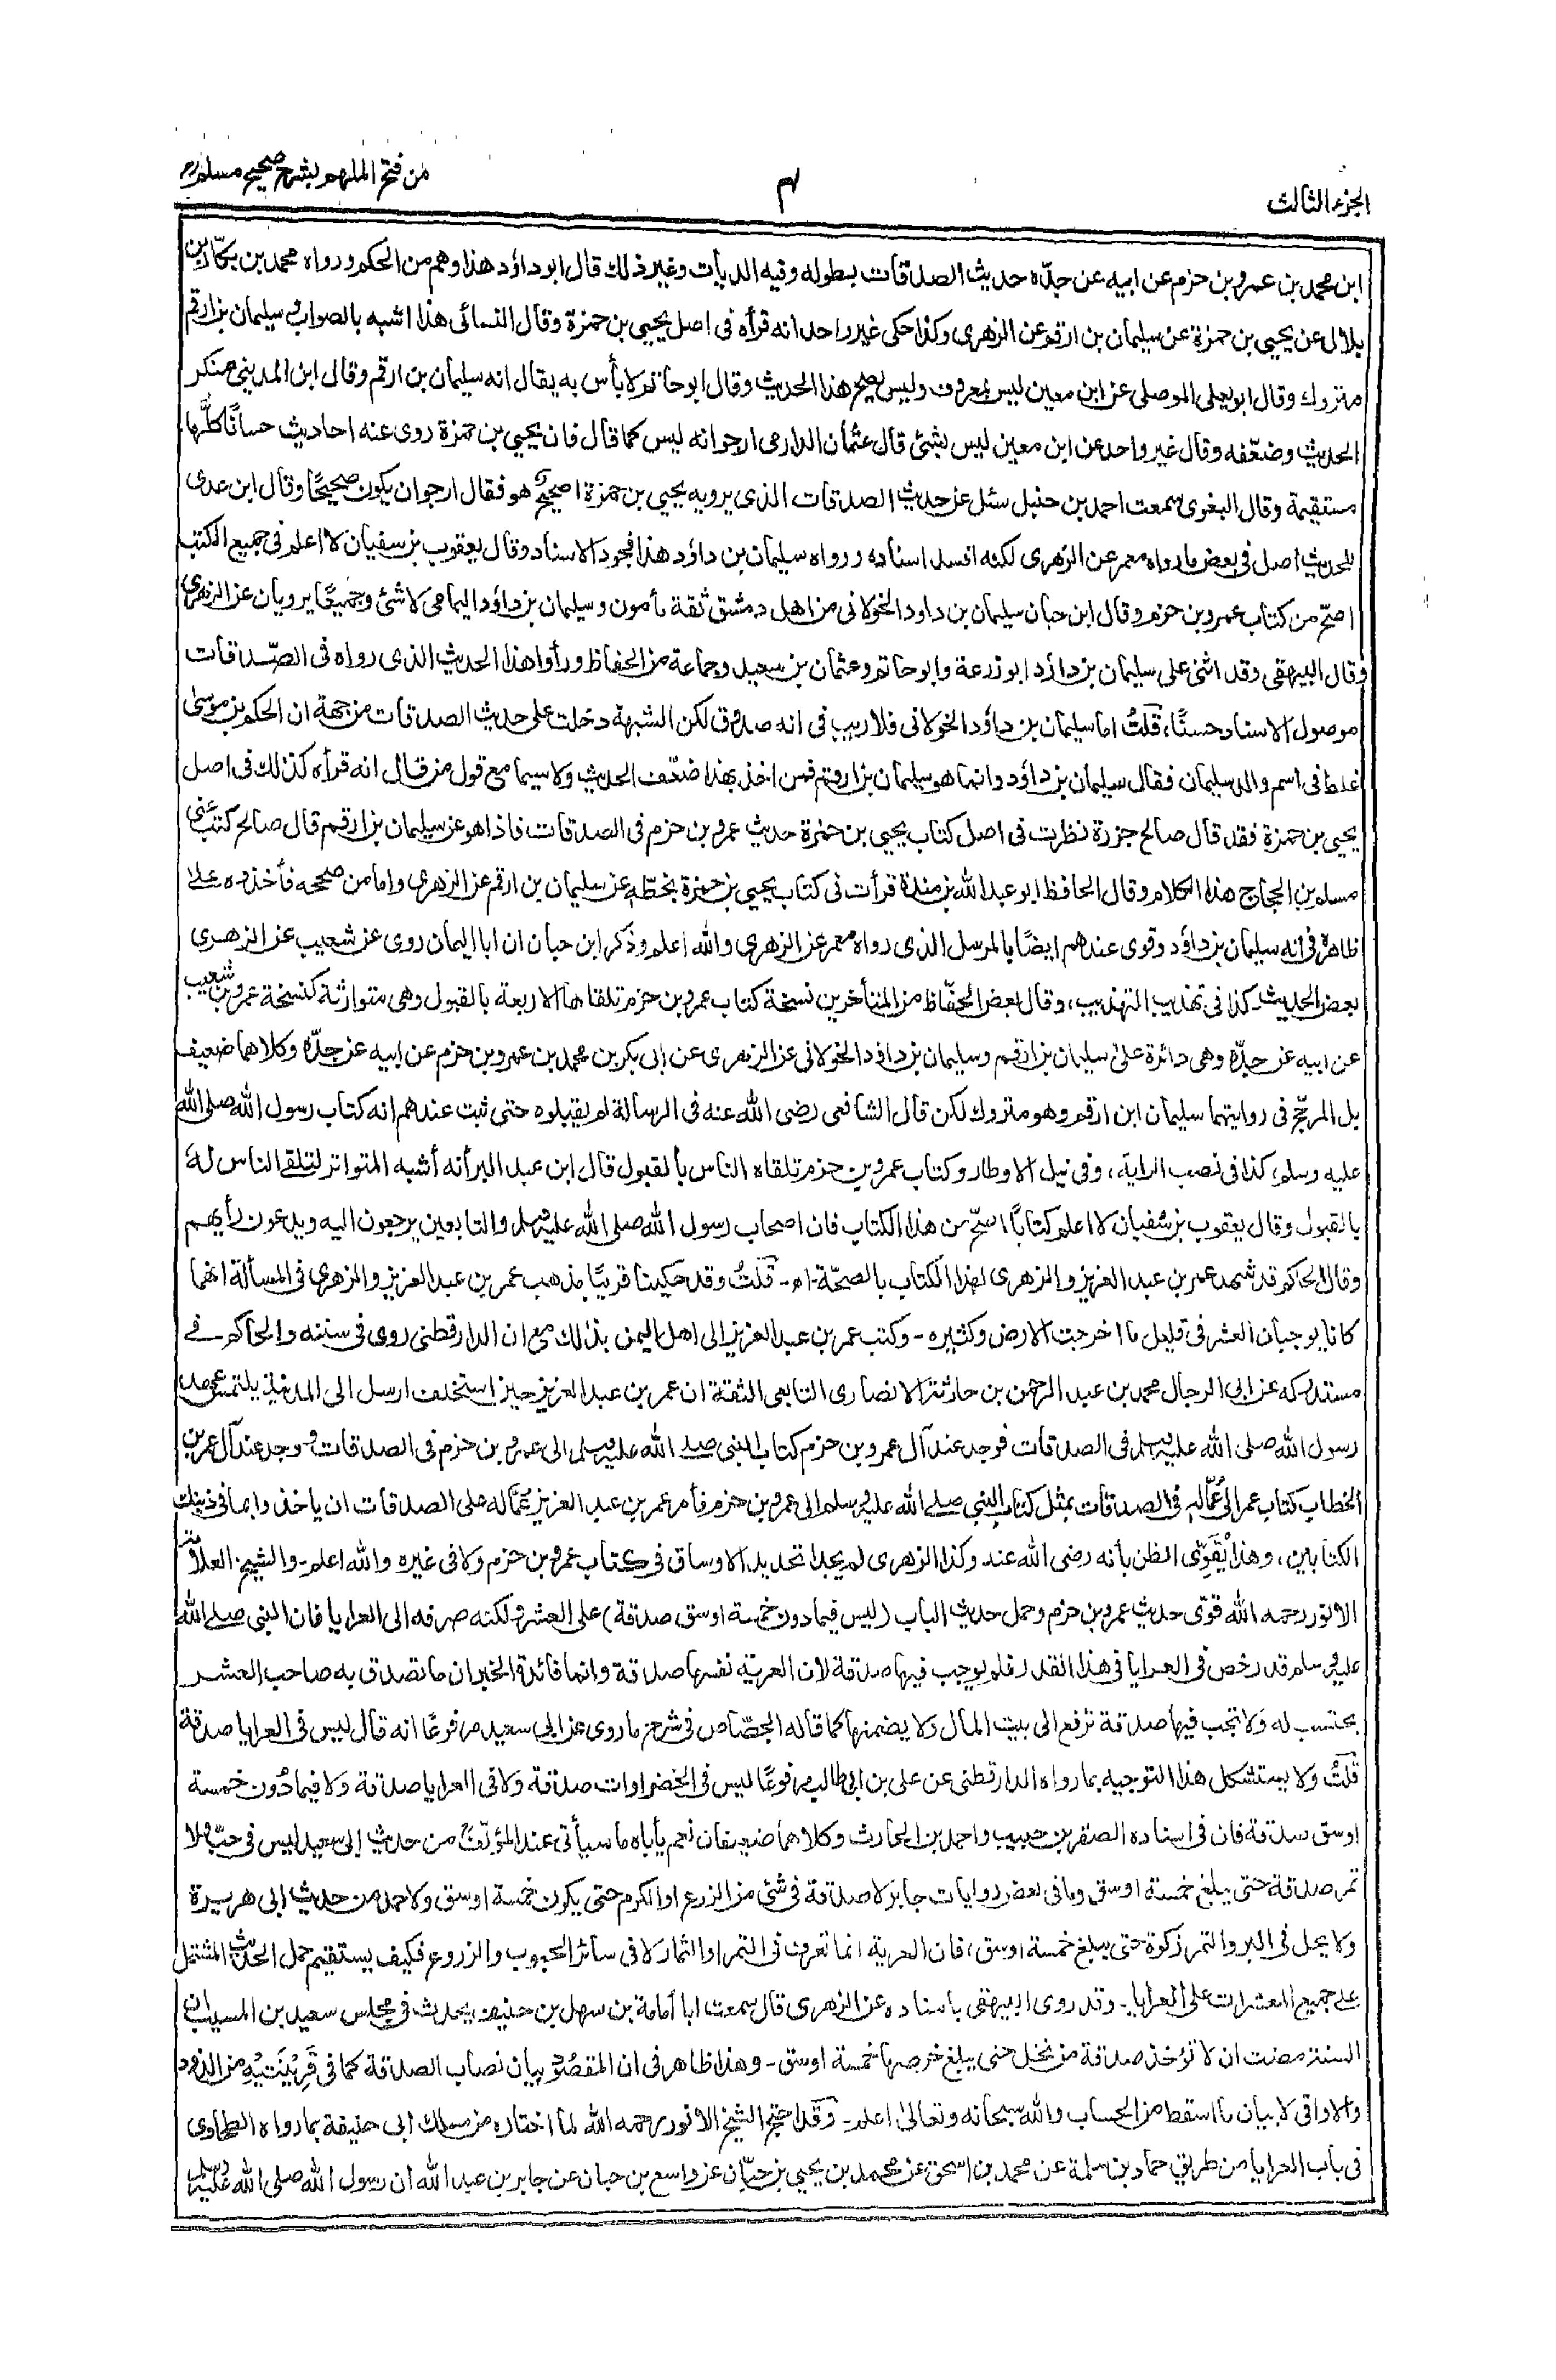 الجزء الثالث
٤
من فتح الملهم بشرح صحيح مسلم
ابن محمد بن عمرو بن حزم عن ابيه عن جدّه حديث الصدقات بطوله وفيه الديات وغير ذلك قال ابو داؤد هذا وهم من الحكم ورواه محمد بن بكّار بن
بلال عن يحيى بن حمزة عن سليمان بن ارقم عن الزهري وكذا حكى غير واحد انه قرأه في اصل يحيى بن حمزة وقال النسائى هذا اشبه بالصواب وسليمان بن ارقم
متروك وقال ابو يعلى الموصلى عن ابن معين ليس بمعروف وليس يصح هذا الحديث وقال ابو حاتم لا بأس به يقال انه سليمان بن ارقم وقال ابن المديني منكر
الحديث وضعّفه وقال غير واحد عن ابن معين ليس بشئ قال عثمان الدارمى ارجو انه ليس كما قال فان يحيى بن حمزة روى عنه احاديث حسانًا كلُّها
مستقيمة وقال البغوى سمعت احمد بن حنبل سئل عن حديث الصدقات الذى يرويه يحيى بن حمزة اصحيحٌ هو فقال ارجو ان يكون صحيحًا وقال ابن عدى
للحديث اصل فى بعض ما رواه معمر عن الزهرى لكنه افسد اسناده ورواه سليمان بن داؤد هذا فجود الاسناد وقال يعقوب بن سفيان لا اعلم فى جميع الكتب
اصحّ من كتاب عمرو بن حزم وقال ابن حبان سليمان بن داود الخولانى من اهل دمشق ثقة مأمون وسليمان بن داؤد اليمامى لا شئ وجميعًا يرويان عن الزهرى
وقال البيهقى وقد اثنى على سليمان بن داؤد ابو زرعة وابو حاتم وعثمان بن سعيد وجماعة من الحفاظ ورأوا هذا الحديث الذى رواه فى الصّدقات
موصول الاسناد حسنًا، قلتُ اما سليمان بن داؤد الخولانى فلا ريب فى انه صدوق لكن الشبهة دخلت على حديث الصدقات من جهة ان الحكم بن موسى
غلط فى اسم والد سليمان فقال سليمان بن داؤد وانما هو سليمان بن ارقم فمن اخذ بهذا ضعّف الحديث ولا سيما مع قول من قال انه قرأه كذلك فى اصل
يحيى بن حمزة فقد قال صالح جزرة نظرت فى اصل كتاب يحيى بن حمزة حديث عمرو بن حزم فى الصدقات فاذا هو عن سليمان بن ارقم قال صالح كتب عنى
مسلم بن الحجاج هذا الكلام وقال الحافظ ابو عبد الله بن مندة قرأت فى كتاب يحيى بن حمزة بخطّه عن سليمان بن ارقم عن الزهرى واما من صححه فأخذوه على
ظاهره فى انه سليمان بن داؤد وقوى عندهم ايضًا بالمرسل الذى رواه معمر عن الزهرى والله اعلم وذكر ابن حبان ان ابا اليمان روى عن شعيب عن الزهرى
بعض الحديث كذا فى تهذيب التهذيب، وقال بعض الحفّاظ من المتأخرين نسخة كتاب عمرو بن حزم تلقاها الاربعة بالقبول وهى متوارثة كنسخة عمرو بن شعيب
عن ابيه عن جدّه وهى دائرة على سليمان بن ارقم وسليمان بن داؤد الخولانى عن الزهرى عن ابى بكر بن محمد بن عمرو بن حزم عن ابيه عن جدّه وكلاهما ضعيف
بل المرجّح فى روايتهما سليمان ابن ارقم وهو متروك لكن قال الشافعى رضى الله عنه فى الرسالة لم يقبلوه حتى ثبت عندهم انه كتاب رسول الله صلى الله
عليه وسلم، كذا فى نصب الراية، وفى نيل الاوطار وكتاب عمرو بن حزم تلقاه الناس بالقبول قال ابن عبد البر أنه أشبه المتواتر لتلقى الناس لهٗ
بالقبول وقال يعقوب بن سفيان لا اعلم كتابًا اصحّ من هذا الكتاب فان اصحاب رسول الله صلى الله عليه وسلم والتابعين يرجعون اليه ويدعون رأيهم
وقال الحاكم قد شهد عمر بن عبد العزيز والزهرى لهذا الكتاب بالصحّة، اه- قلتُ وقد حكينا قريبًا مذهب عمر بن عبد العزيز والزهرى فى المسألة انهما
كانا يوجبان العشر فى قليل ما اخرجت الارض وكثيره - وكتب عمر بن عبد العزيز الى اهل اليمن بذلك مع ان الدارقطنى روى فى سننه والحاكم فى
مستدركه عن ابى الرجال محمد بن عبد الرحمٰن بن حارثة الانصارى التابعى الثقة ان عمر بن عبد العزيز حين استخلف ارسل الى المدينة يلتمس عهد
رسول الله صلى الله عليه وسلم فى الصدقات فوجد عند آل عمرو بن حزم كتاب النبى صلى الله عليه وسلم الى عمرو بن حزم فى الصدقات ووجد عند آل عمر بن
الخطاب كتاب عمر الى عُمّاله فى الصدقات بمثل كتاب النبى صلى الله عليه وسلم الى عمرو بن حزم فأمر عمر بن عبد العزيز عمّاله على الصدقات ان ياخذوا بما فى ذينك
الكتابين، وهذا يُقَوّى الظن بأنه رضى الله عنه وكذا الزهرى لم يجدا تحديد الاوساق فى كتاب عمرو بن حزم ولا فى غيره والله اعلم - والشيخ العلامة
الانور رحمه الله قوّى حديث عمرو بن حزم وحمل حديث الباب (ليس فيما دون خمسة اوسق صدقة) على العشر ولكنه صرفه الى العرايا فان النبى صلى الله
عليه وسلم قد رخص فى العرايا فى هذا القدر فلم يوجب فيها صدقة لان العريّة نفسها صدقة وانما فائدة الخبر ان ما تصدق به صاحب العشر
يحتسب له ولا تجب فيها صدقة ترفع الى بيت المال ولا يضمنها كما قاله الجصّاص فى شرح ما روى عن ابى سعيد مرفوعًا انه قال ليس فى العرايا صدقة
قلتُ ولا يستشكل هذا التوجيه بما رواه الدارقطنى عن على بن ابى طالب مرفوعًا ليس فى الخضراوات صدقة ولا فى العرايا صدقة ولا فيما دُون خمسة
اوسق صدقة فان فى اسناده الصقر بن حبيب واحمد بن الحارث وكلاهما ضعيفان نعم يأباه ما سيأتى عند المؤلّف من حديث ابى سعيد ليس فى حبّ ولا
تمر صدقة حتى يبلغ خمسة اوسق وما فى بعض روايات جابر لا صدقة فى شئ من الزرع او الكرم حتى يكون خمسة اوسق ولاحمد من حديث ابى هريرة
ولا يحل فى البر والتمر زكوة حتى يبلغ خمسة اوسق، فان العرية انما تعرف فى التمر او الثمار لا فى سائر الحبوب والزروع فكيف يستقيم حمل الحديث المشتمل
على جميع المعشرات على العرايا - وقد روى البيهقى باسناده عن الزهرى قال سمعت ابا أمامة بن سهل بن حنيف يحدث فى مجلس سعيد بن المسيب ان
السنة مضت ان لا تؤخذ صدقة من نخل حتى يبلغ خرصها خمسة اوسق - وهذا ظاهر فى ان المقصود بيان نصاب الصدقة كما فى قَرِيْنَتَيْهِ من الذود
والاواقى لا بيان ما اسقط من الحساب والله سبحانه وتعالىٰ اعلم - وقد احتج الشيخ الانور رحمه الله لما اختاره من مسلك ابى حنيفة بما رواه الطحاوى
فى باب العرايا من طريق حماد بن سلمة عن محمد بن اسحق عن محمد بن يحيى بن حبّان عن واسع بن حبان عن جابر بن عبد الله ان رسول الله صلى الله عليه وسلم